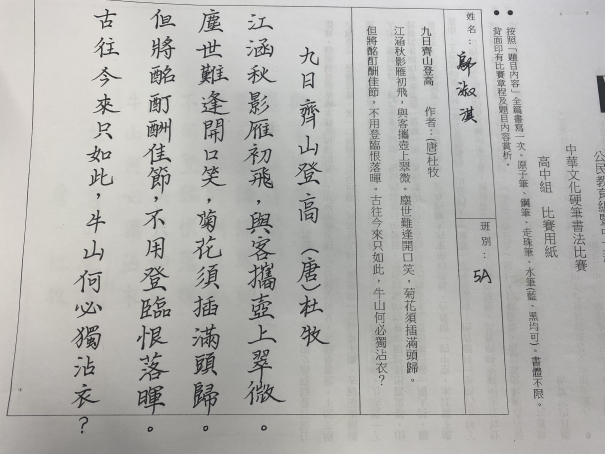 中華文化硬筆書法比賽
高中組　比賽用紙
● 按照「題目內容」全篇書寫一次。原子筆、鋼筆、走珠筆、水筆(藍、黑均可)。書體不限。
● 背面印有比賽章程及題目內容賞析。
姓名：鄔淑淇　班別：5A
九日齊山登高　作者：(唐)杜牧
江涵秋影雁初飛，與客攜壺上翠微。塵世難逢開口笑，菊花須插滿頭歸。
但將酩酊酬佳節，不用登臨恨落暉。古往今來只如此，牛山何必獨沾衣？
九日齊山登高　(唐)杜牧
江涵秋影雁初飛，與客攜壺上翠微。
塵世難逢開口笑，菊花須插滿頭歸。
但將酩酊酬佳節，不用登臨恨落暉。
古往今來只如此，牛山何必獨沾衣？